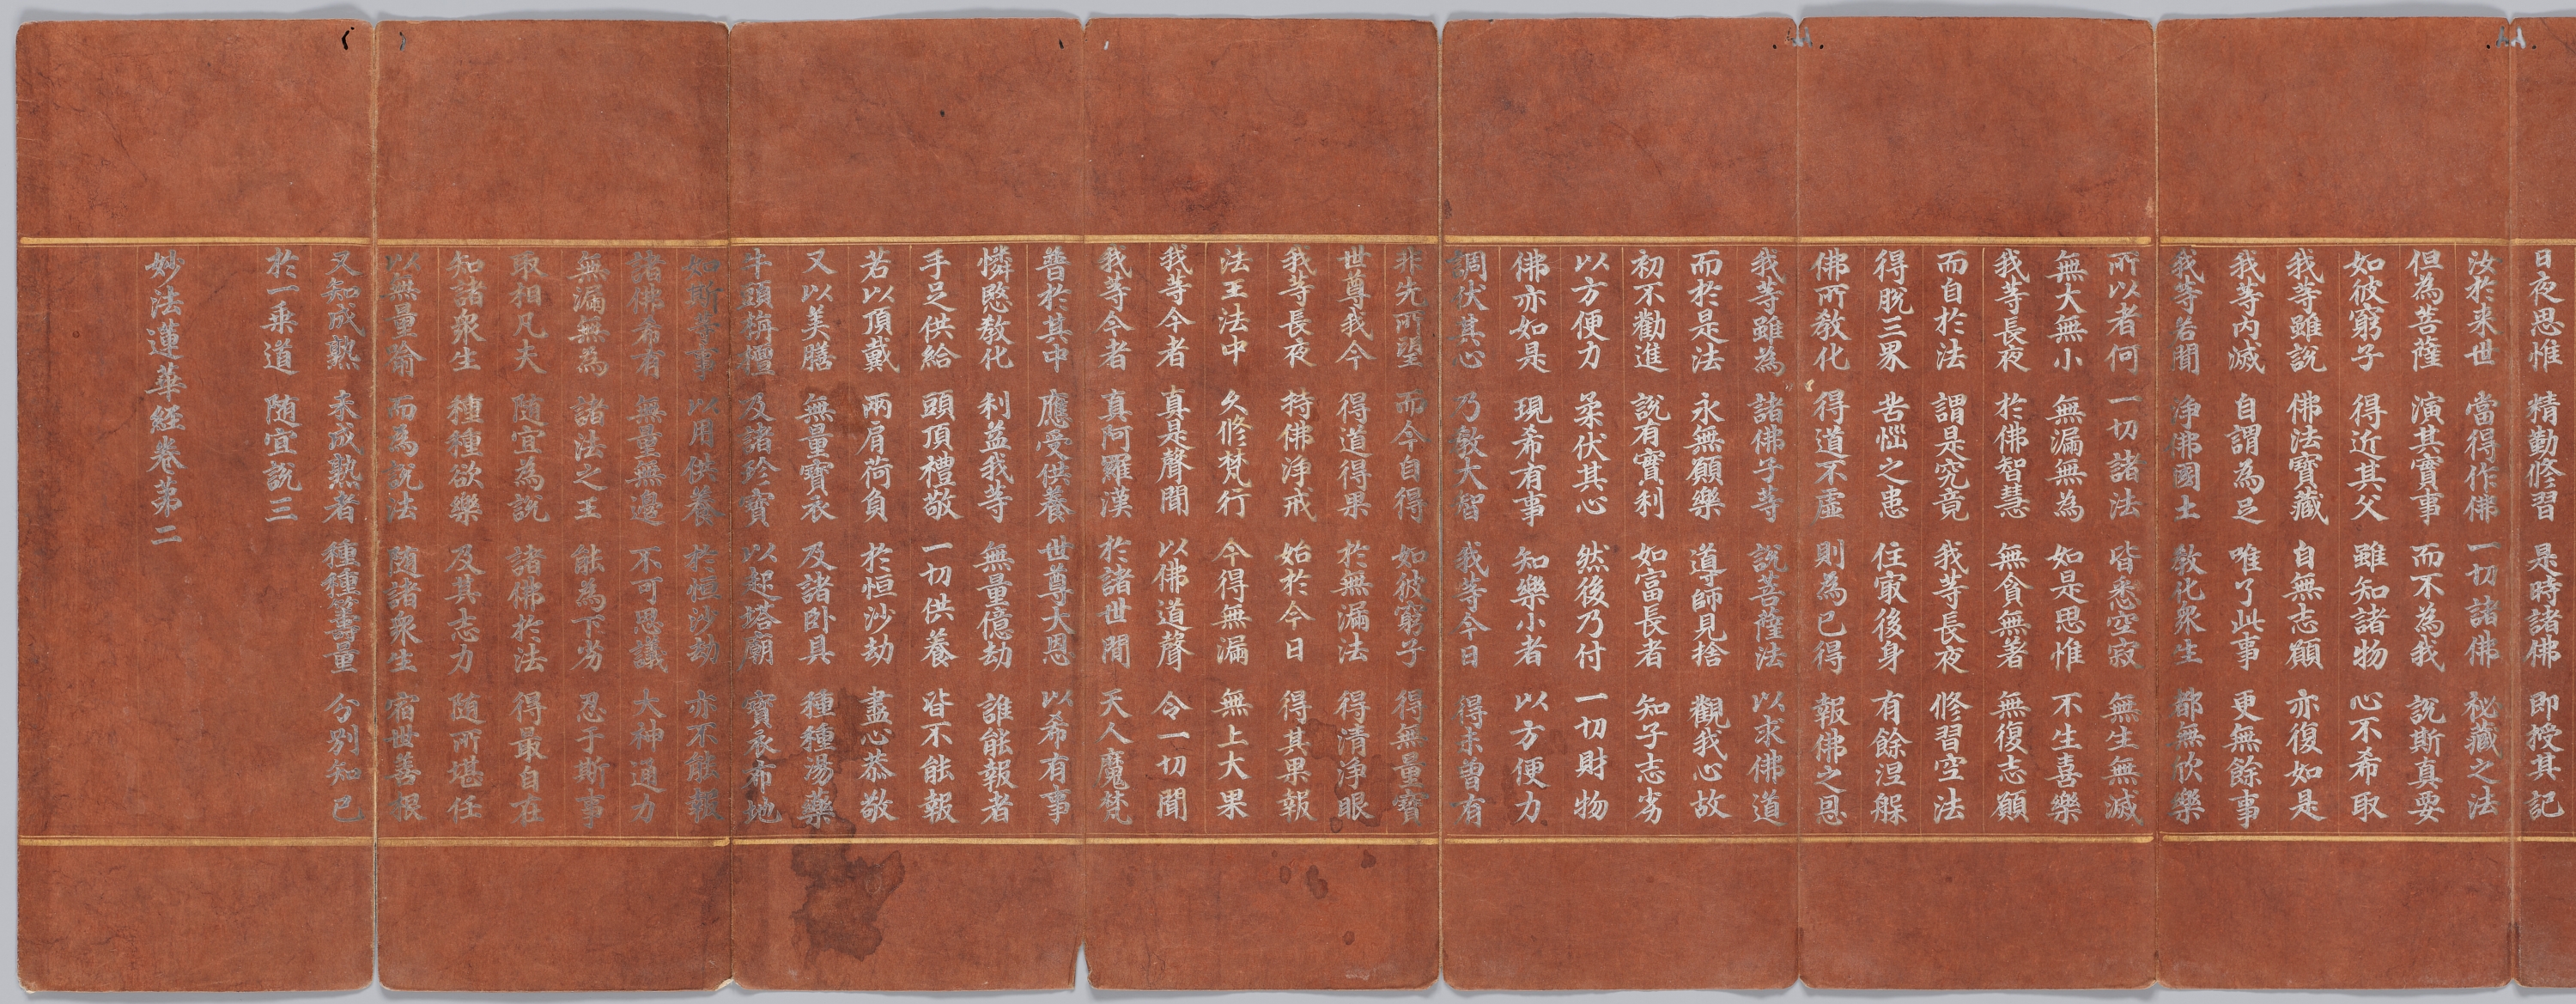 日夜思惟　精勤修習　是時諸佛　即授其記
汝於来世　當得作佛　一切諸佛　祕藏之法
但為菩薩　演其實事　而不為我　說斯真要
如彼窮子　得近其父　雖知諸物　心不希取
我等雖說　佛法寶藏　自無志願　亦復如是
我等內滅　自謂為足　唯了此事　更無餘事
我等若聞　淨佛國土　敎化衆生　都無欣樂
所以者何　一切諸法　皆悉空寂　無生無滅
無大無小　無漏無為　如是思惟　不生喜樂
我等長夜　於佛智慧　無貪無著　無復志願
而自於法　謂是究竟　我等長夜　修習空法
得脫三界　苦惱之患　住㝡後身　有餘涅槃
佛所敎化　得道不虛　則為已得　報佛之恩
我等雖為　諸佛子等　說菩薩法　以求佛道
而於是法　永無願樂　導師見捨　觀我心故
初不勸進　說有實利　如富長者　知子志劣
以方便力　柔伏其心　然後乃付　一切財物
佛亦如是　現希有事　知樂小者　以方便力
調伏其心　乃敎大智　我等今日　得未曾有
非先所望　而今自得　如彼窮子　得無量寶
世尊我今　得道得果　於無漏法　得清淨眼
我等長夜　持佛淨戒　始於今日　得其果報
法王法中　久修梵行　今得無漏　無上大果
我等今者　真是聲聞　以佛道聲　令一切聞
我等今者　真阿羅漢　於諸世間　天人魔梵
普於其中　應受供養　世尊大恩　以希有事
憐愍敎化　利益我等　無量億劫　誰能報者
手足供給　頭頂禮敬　一切供養　皆不能報
若以頂戴　兩肩荷負　於恒沙劫　盡心恭敬
又以美膳　無量寶衣　及諸卧具　種種湯藥
牛頭栴檀　及諸珍寶　以起塔廟　寶衣布地
如斯等事　以用供養　於恒沙劫　亦不能報
諸佛希有　無量無邊　不可思議　大神通力
無漏無為　諸法之王　能為下劣　忍于斯事
取相凡夫　随宜為說　諸佛於法　得最自在
知諸衆生　種種欲樂　及其志力　随所堪任
以無量喻　而為說法　随諸衆生　宿世善根
又知成熟　未成熟者　種種籌量　分別知已
於一乗道　随宜說三
妙法蓮華經卷第二